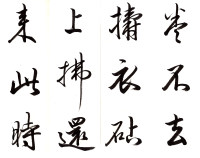 卷不去
擣衣砧
上拂還
來此時